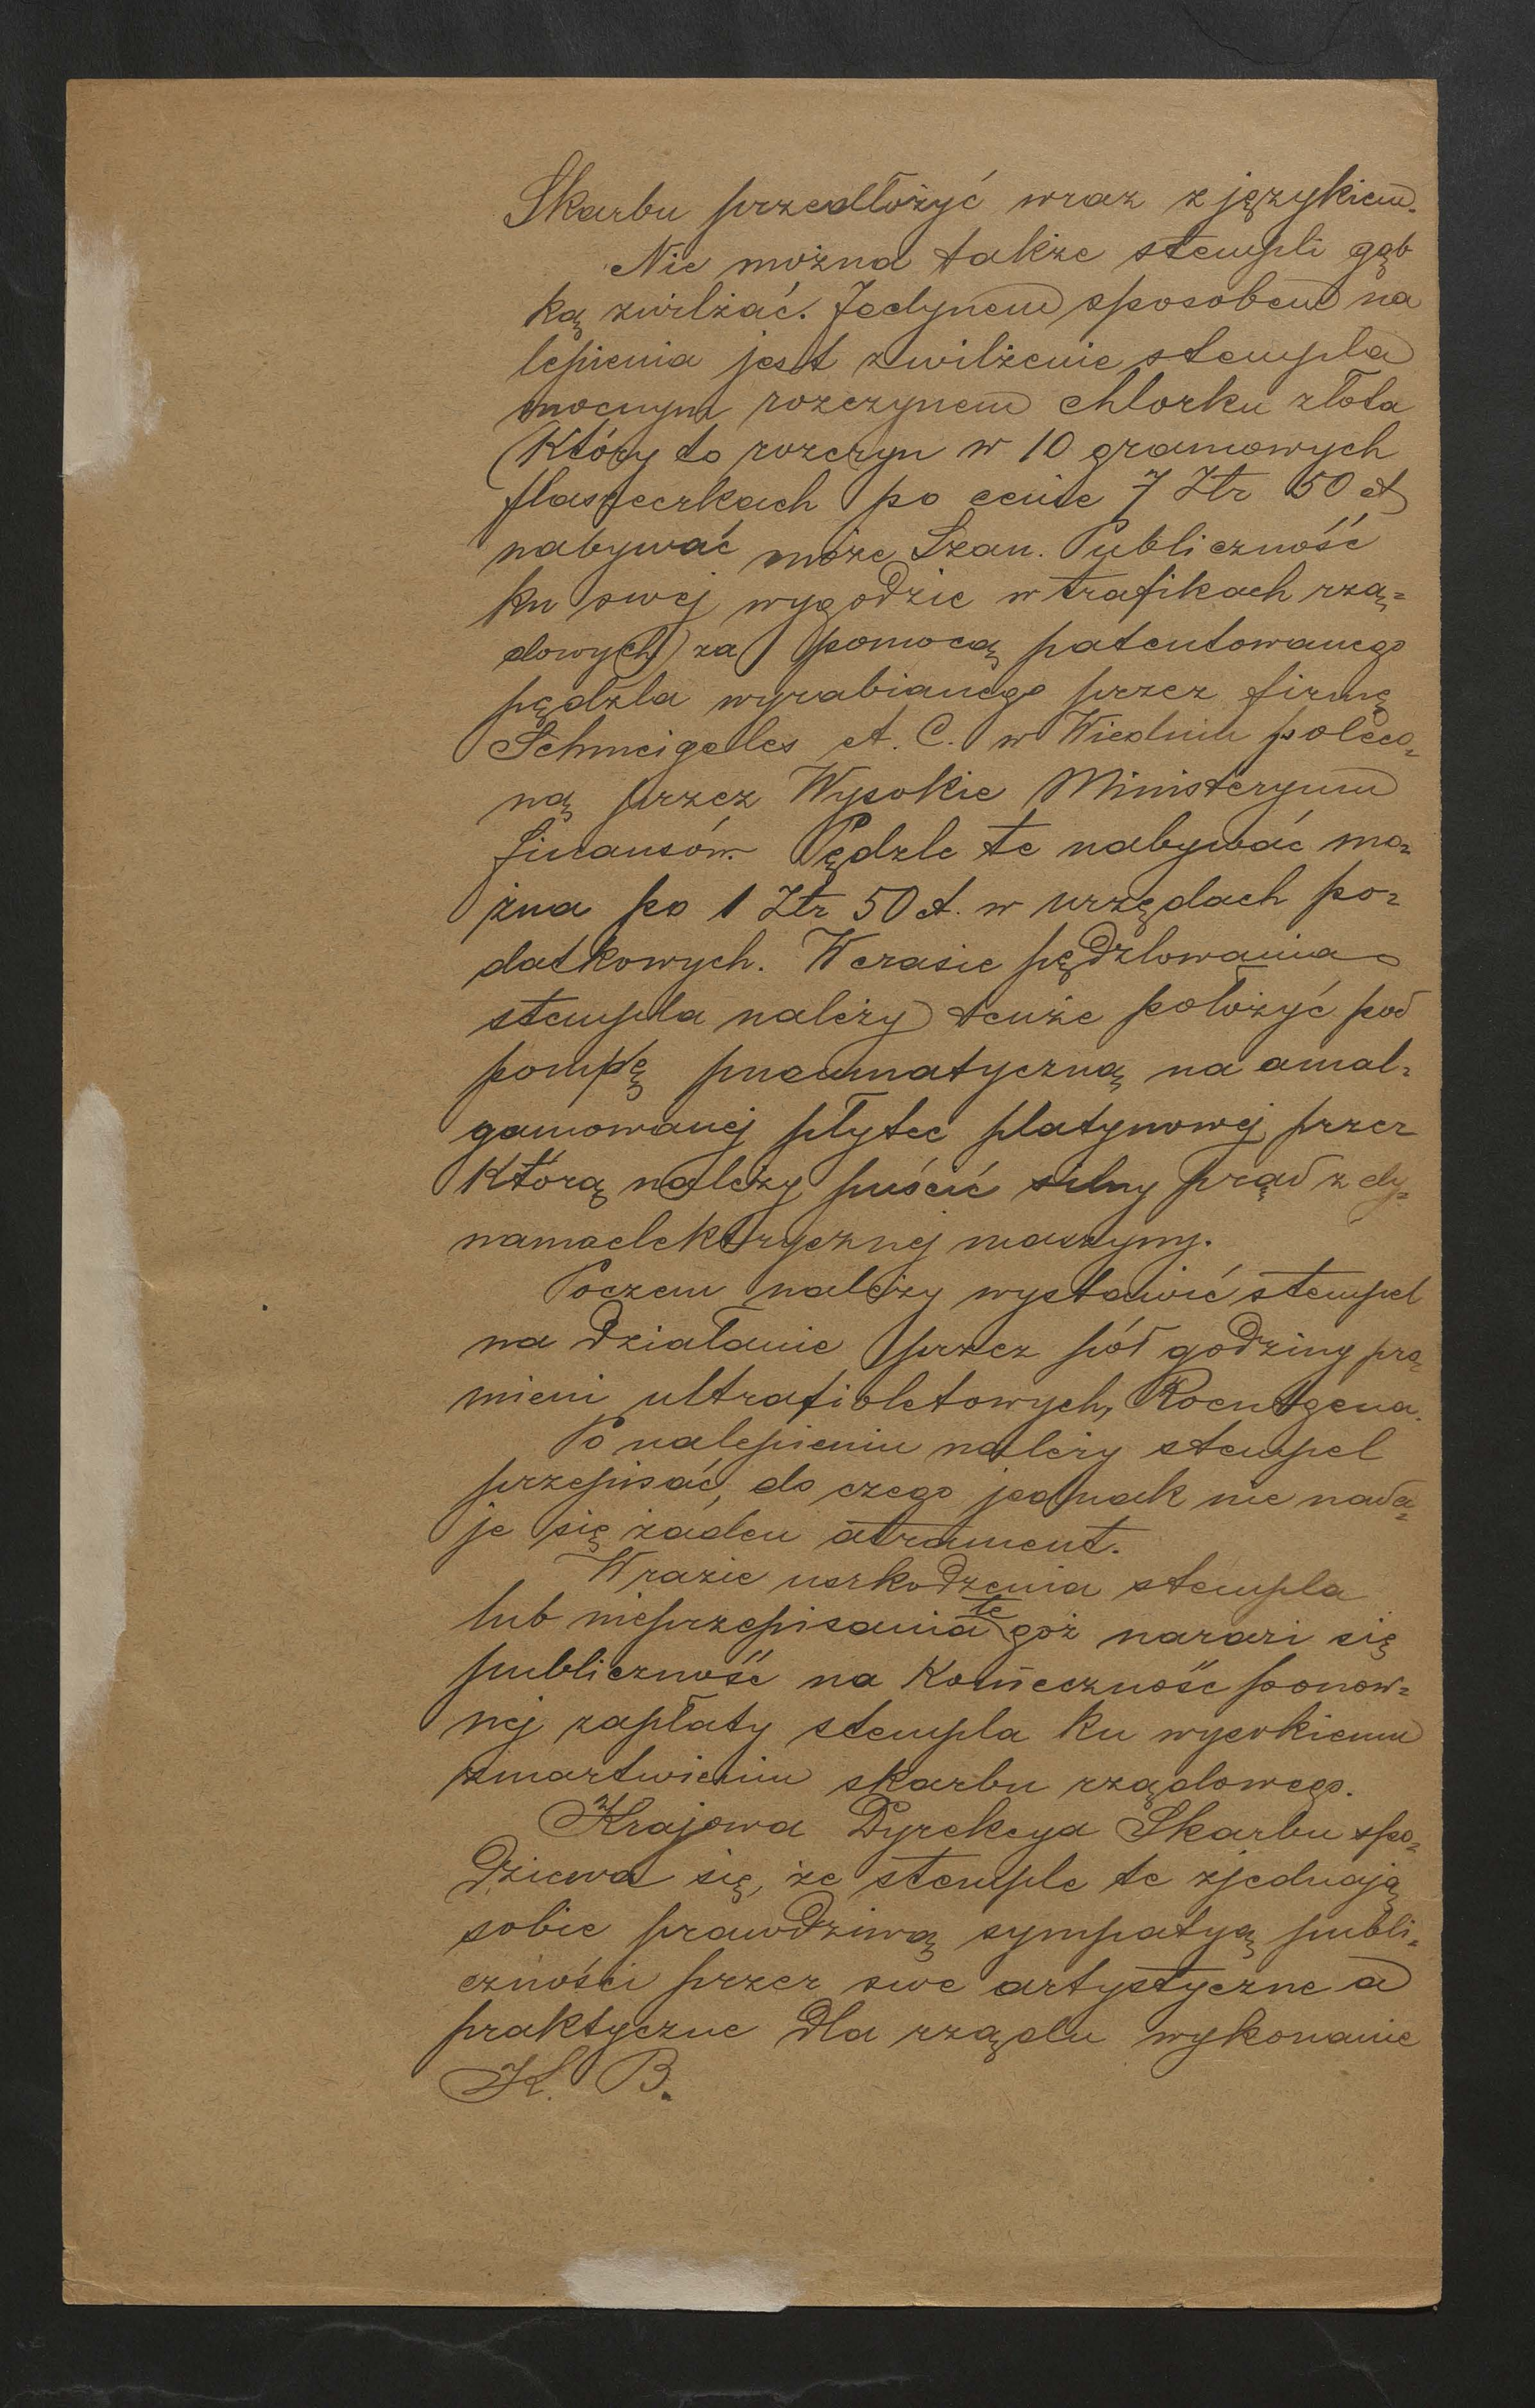 Skarbu przedłożyć wraz z językiem.
Nie można także stempli gąb
ką zwilżać. Jedynem sposobem na
lepienia jest zwilżenie stempla
mocnym rozczynem chlorku złota
(który to rozczyn w 10 gramowych
flaszeczkach po cenie 7 Złr 50 ct
nabywać może Szan. Publiczność
ku swej wygodzie w trafikach rzą=
dowych) za pomocą patentowanego
pędzla wyrabianego przez firmę
Schmeigeles et. C. w Wiedniu poleco=
ną przez Wysokie Ministeryum
finansów. Pędzle te nabywać mo=
żna po 1 Złr 50 ct. w urzędach po=
datkowych. W czasie pędzlowania
stempla należy tenże położyć pod
pompę pneumatyczną na amal=
gamowanej płytce platynowej przez
którą należy puścić silny prąd z dy=
namaelektrycznej maszyny.
Poczem należy wystawić stempel
na działanie przez pół godziny pro=
mieni ultrafioletowych, Roentgena.
Po nalepieniu należy stempel
przepisać, do czego jednak nie nada=
je się żaden atrament.
W razie uszkodzenia stempla
lub nieprzepisania tegoż narazi się
publiczność na konieczność ponow=
nej zapłaty stempla ku wysokiemu
zmartwieniu skarbu rządowego.
Krajowa Dyrekcya Skarbu spo=
dziewa się, że stemple te zjednają
sobie prawdziwą sympatyą publi=
czności przez swe artystyczne a
praktyczne dla rządu wykonanie
K. B.